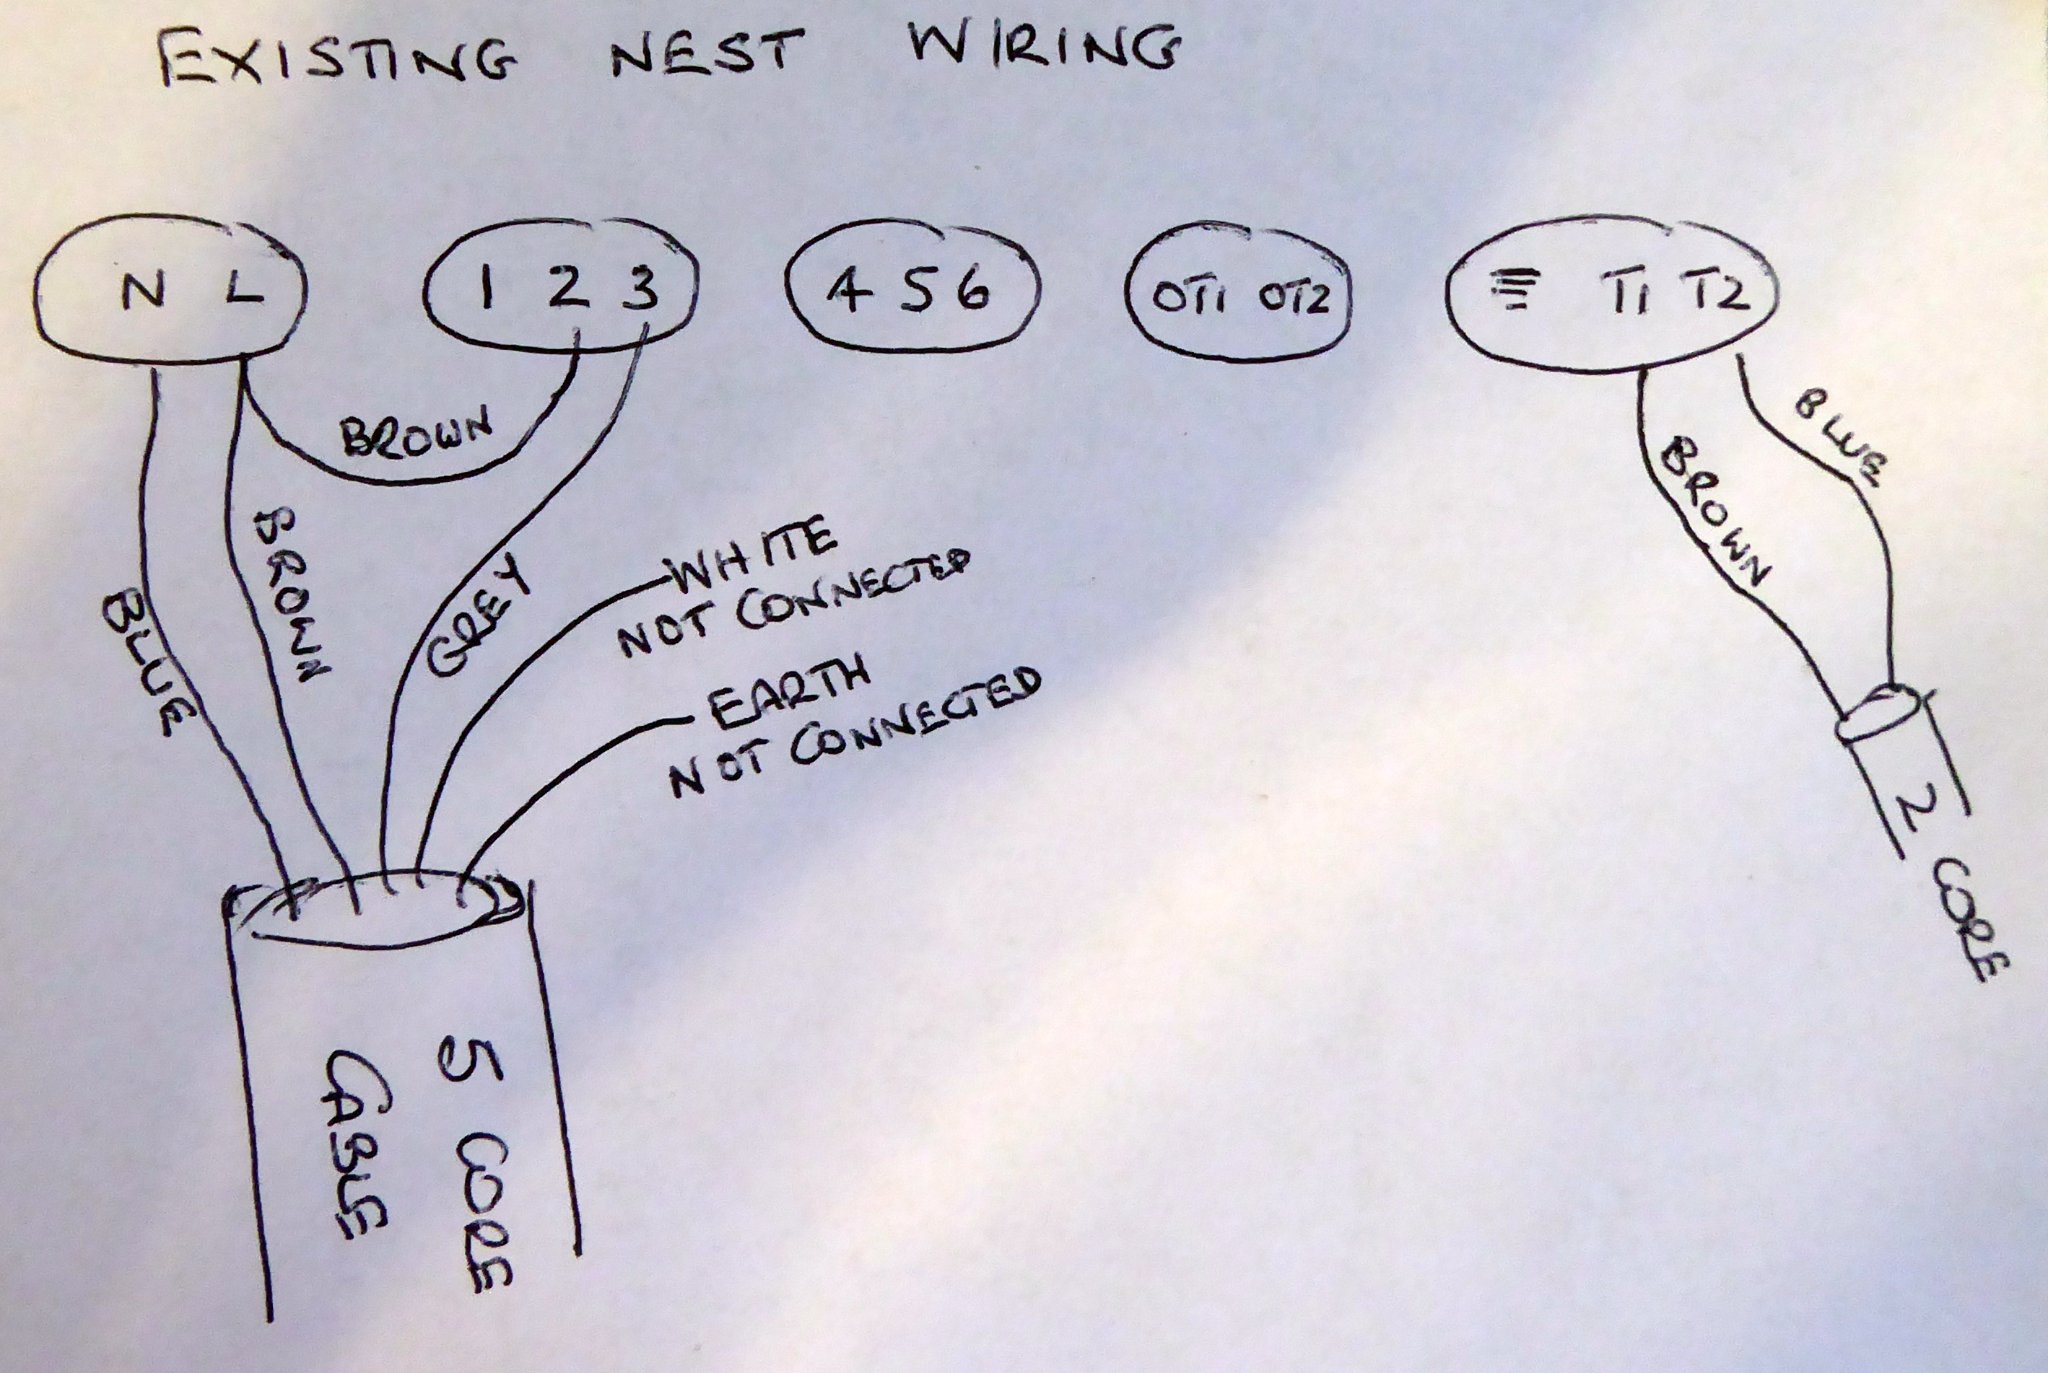 EXISTING NEST WIRING
N L
1 2 3
4 5 6
OT1 OT2
T1 T2
BROWN
BLUE
BROWN
GREY
WHITE
NOT CONNECTED
EARTH
NOT CONNECTED
BROWN
BLUE
2 CORE
5 CORE
CABLE